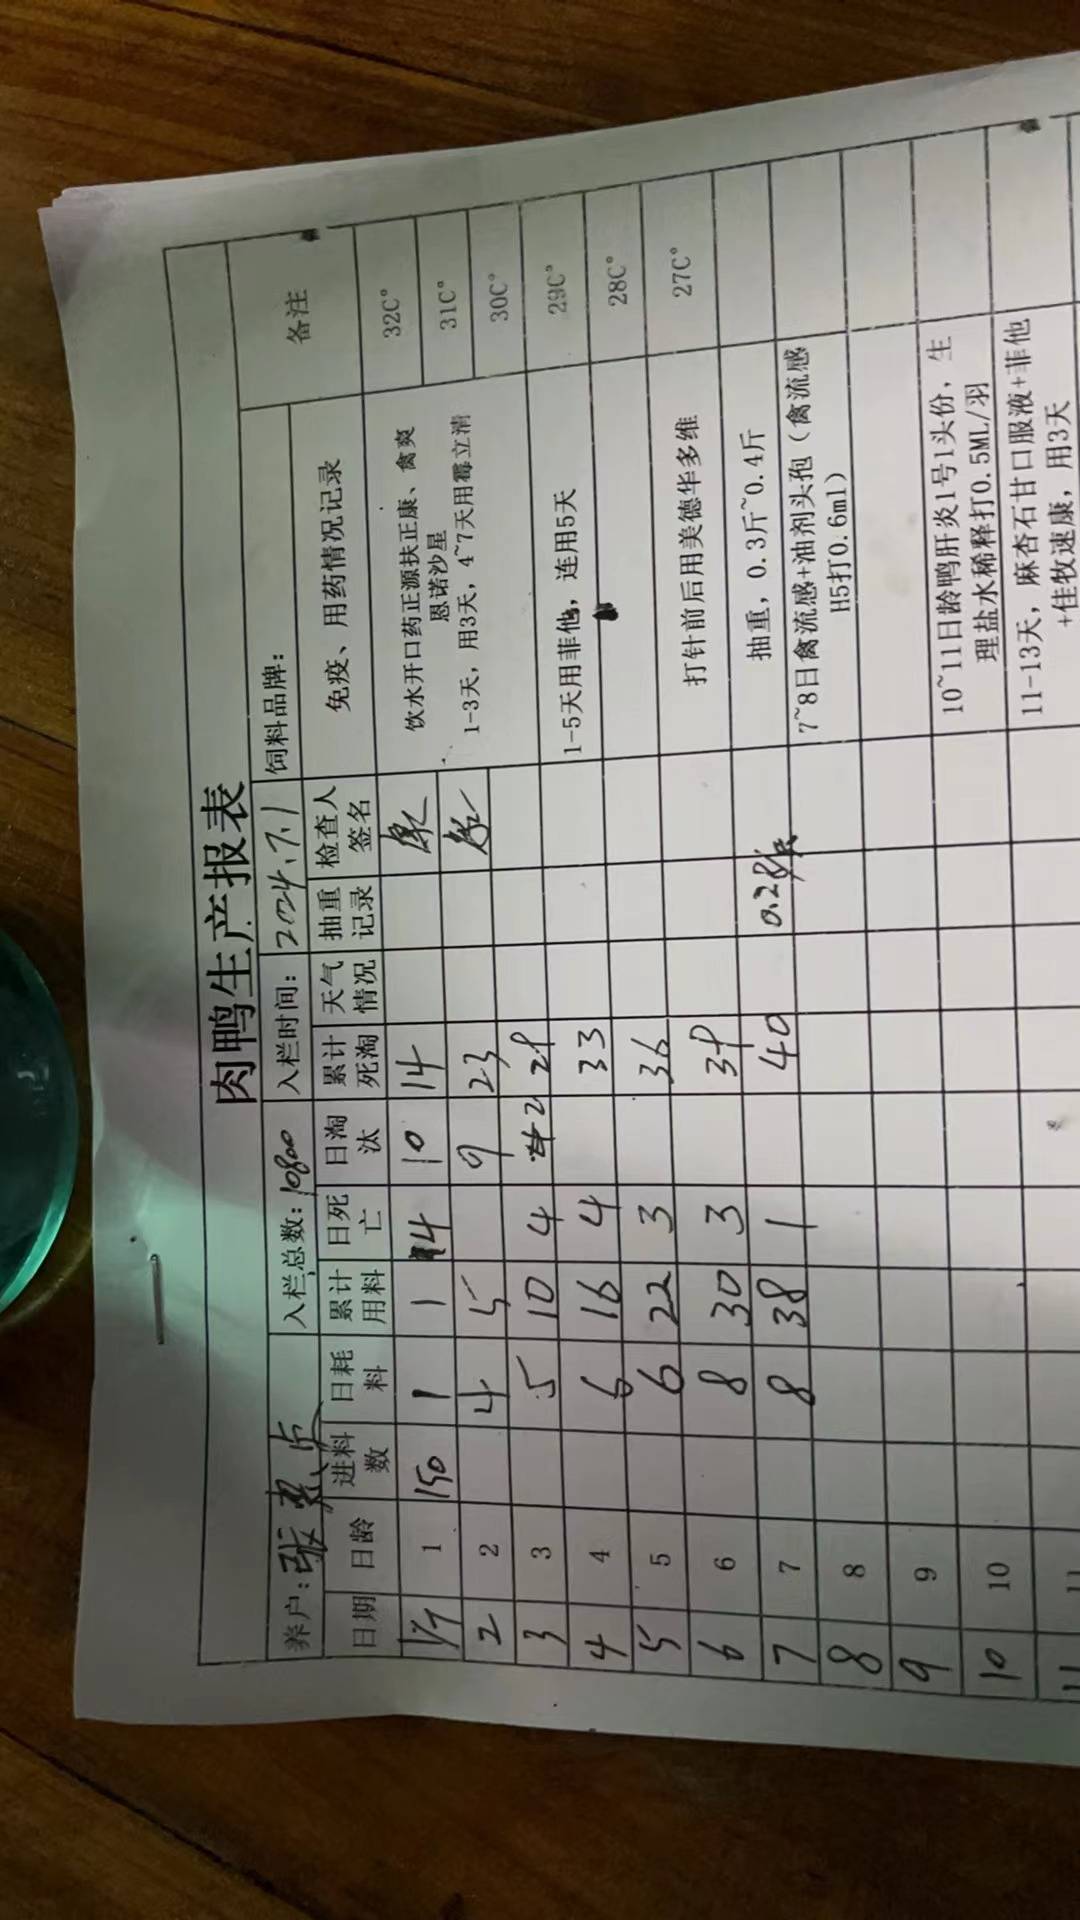 肉鸭生产报表
养户: 张 入栏总数: 10800 入栏时间: 2024.7.1 饲料品牌:
日期 日龄 进料数 日耗料 累计用料 日死亡 日淘汰 累计死淘 天气情况 抽重记录 检查人签名 免疫、用药情况记录 备注
1/7 1 150 1 1 4 10 14 饮水开口药正源扶正康、禽爽恩诺沙星 32C°
2 2 4 5 9 23 1-3天，用3天，4~7天用霉立清 31C°
3 3 5 10 4 2 29 30C°
4 4 6 16 4 33 1-5天用菲他，连用5天 29C°
5 5 6 22 3 36 28C°
6 6 8 30 3 39 打针前后用美德华多维 27C°
7 7 8 38 1 40 0.28斤 抽重，0.3斤~0.4斤
8 8 7~8日禽流感+油剂头孢（禽流感H5打0.6ml）
9 9
10 10 10~11日龄鸭肝炎1号1头份，生理盐水稀释打0.5ML/羽
11 11 11-13天，麻杏石甘口服液+菲他+佳牧速康，用3天